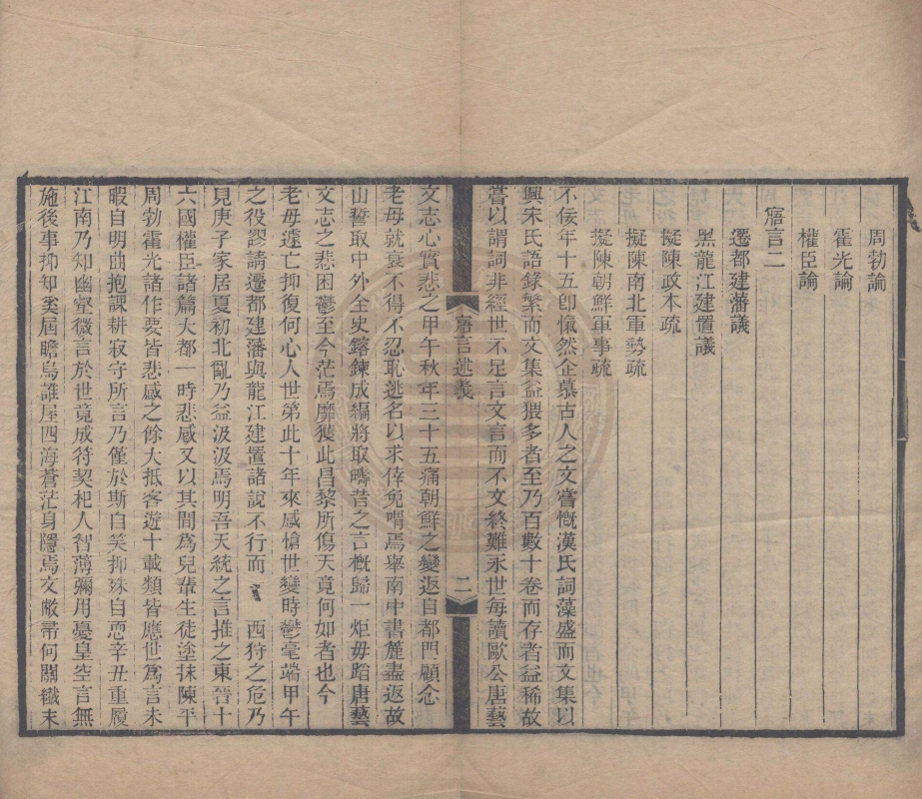 周勃論
霍光論
權臣論
寤言二
遷都建藩議
黑龍江建置議
擬陳政本疏
擬陳南北軍勢疏
擬陳朝鮮軍事疏
不佞年十五卽愾然企慕古人之文嘗慨漢氏詞藻盛而文集以
興宋氏語錄繁而文集益猥多者至乃百數十卷而存者益稀故
嘗以謂詞非經世不足言文言而不文終難永世每讀歐公唐藝
寤言述義
二
文志心實悲之甲午秋年三十五痛朝鮮之變返自都門顧念
老母就衰不得不忍恥逃名以求倖免喟焉舉南中書簏盡返故
山誓取中外全史鎔鍊成編將取疇昔之言概歸一炬毋蹈唐藝
文志之悲困鬱至今茫焉靡獲此昌黎所傷天竟何如者也今
老母遽亡抑復何心人世第此十年來感愴世變時鬱毫端甲午
之役謬請遷都建藩與龍江建置諸說不行而 西狩之危乃
見庚子家居夏初北亂乃益汲汲焉明吾天統之言推之東晉十
六國權臣諸篇大都一時悲感又以其間爲兒輩生徒塗抹陳平
周勃霍光諸作要皆悲感之餘大抵客遊十載類皆應世爲言未
暇自明曲抱課耕寂守所言乃僅於斯自笑抑殊自恧辛丑重履
江南乃知幽壑微言於世竟成符契杞人智薄彌用憂皇空言無
施後事抑知奚屆瞻烏誰屋四海蒼茫身隱焉文敝帚何關纖末